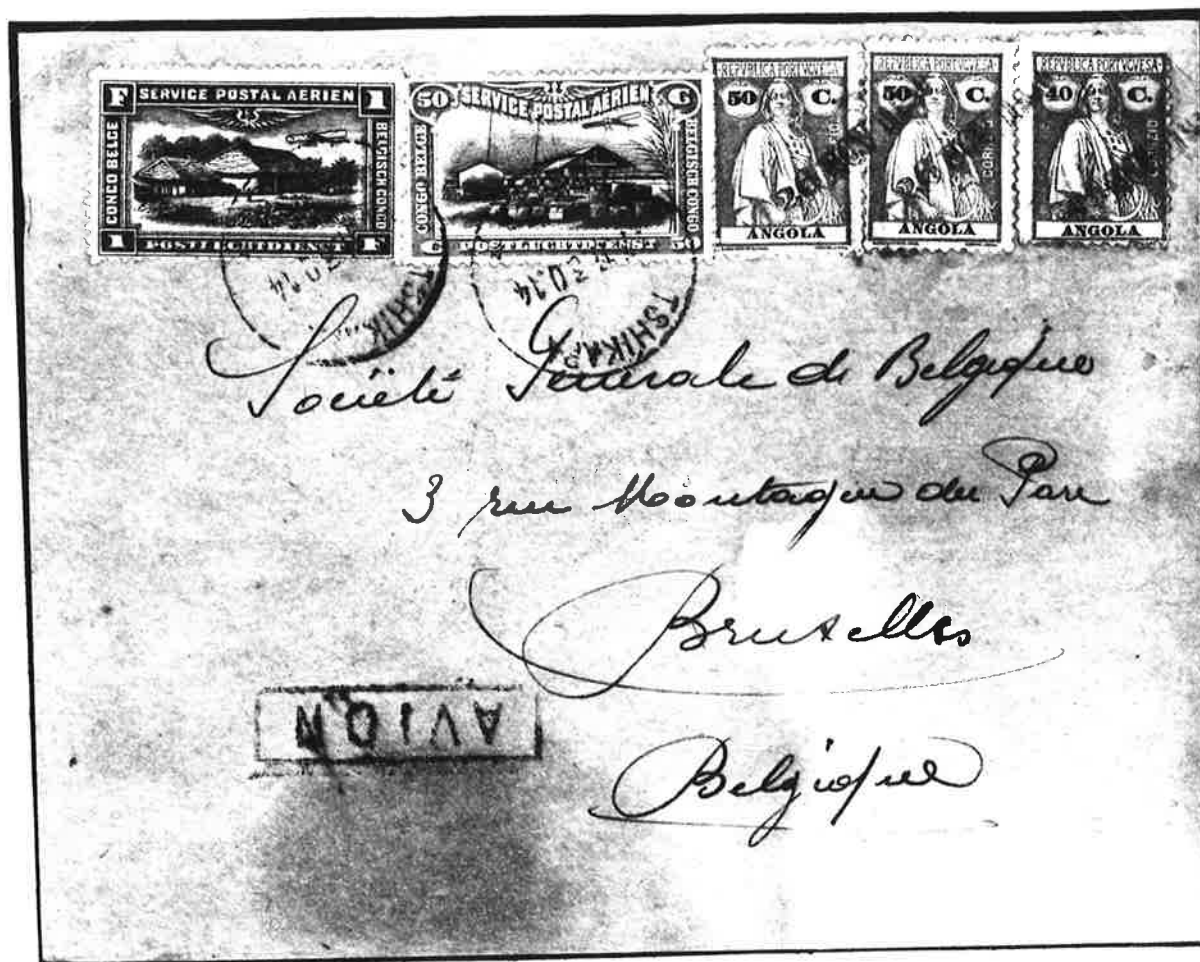 F SERVICE POSTAL AERIEN 1
CONGO BELGE
BELGISCH CONGO
1 POSTLUCHTDIENST F
50 SERVICE POSTAL AÉRIEN C
CONGO BELGE
BELGISCH CONGO
C POSTLUCHTDIENST 50
REPVBLICA PORTVGVESA
50 C.
CORREIO
ANGOLA
REPVBLICA PORTVGVESA
50 C.
CORREIO
ANGOLA
REPVBLICA PORTVGVESA
40 C.
CORREIO
ANGOLA
TSHIK
TSHIKAP
Société Générale de Belgique
3 rue Montagne du Parc
Bruxelles
Belgique
AVION